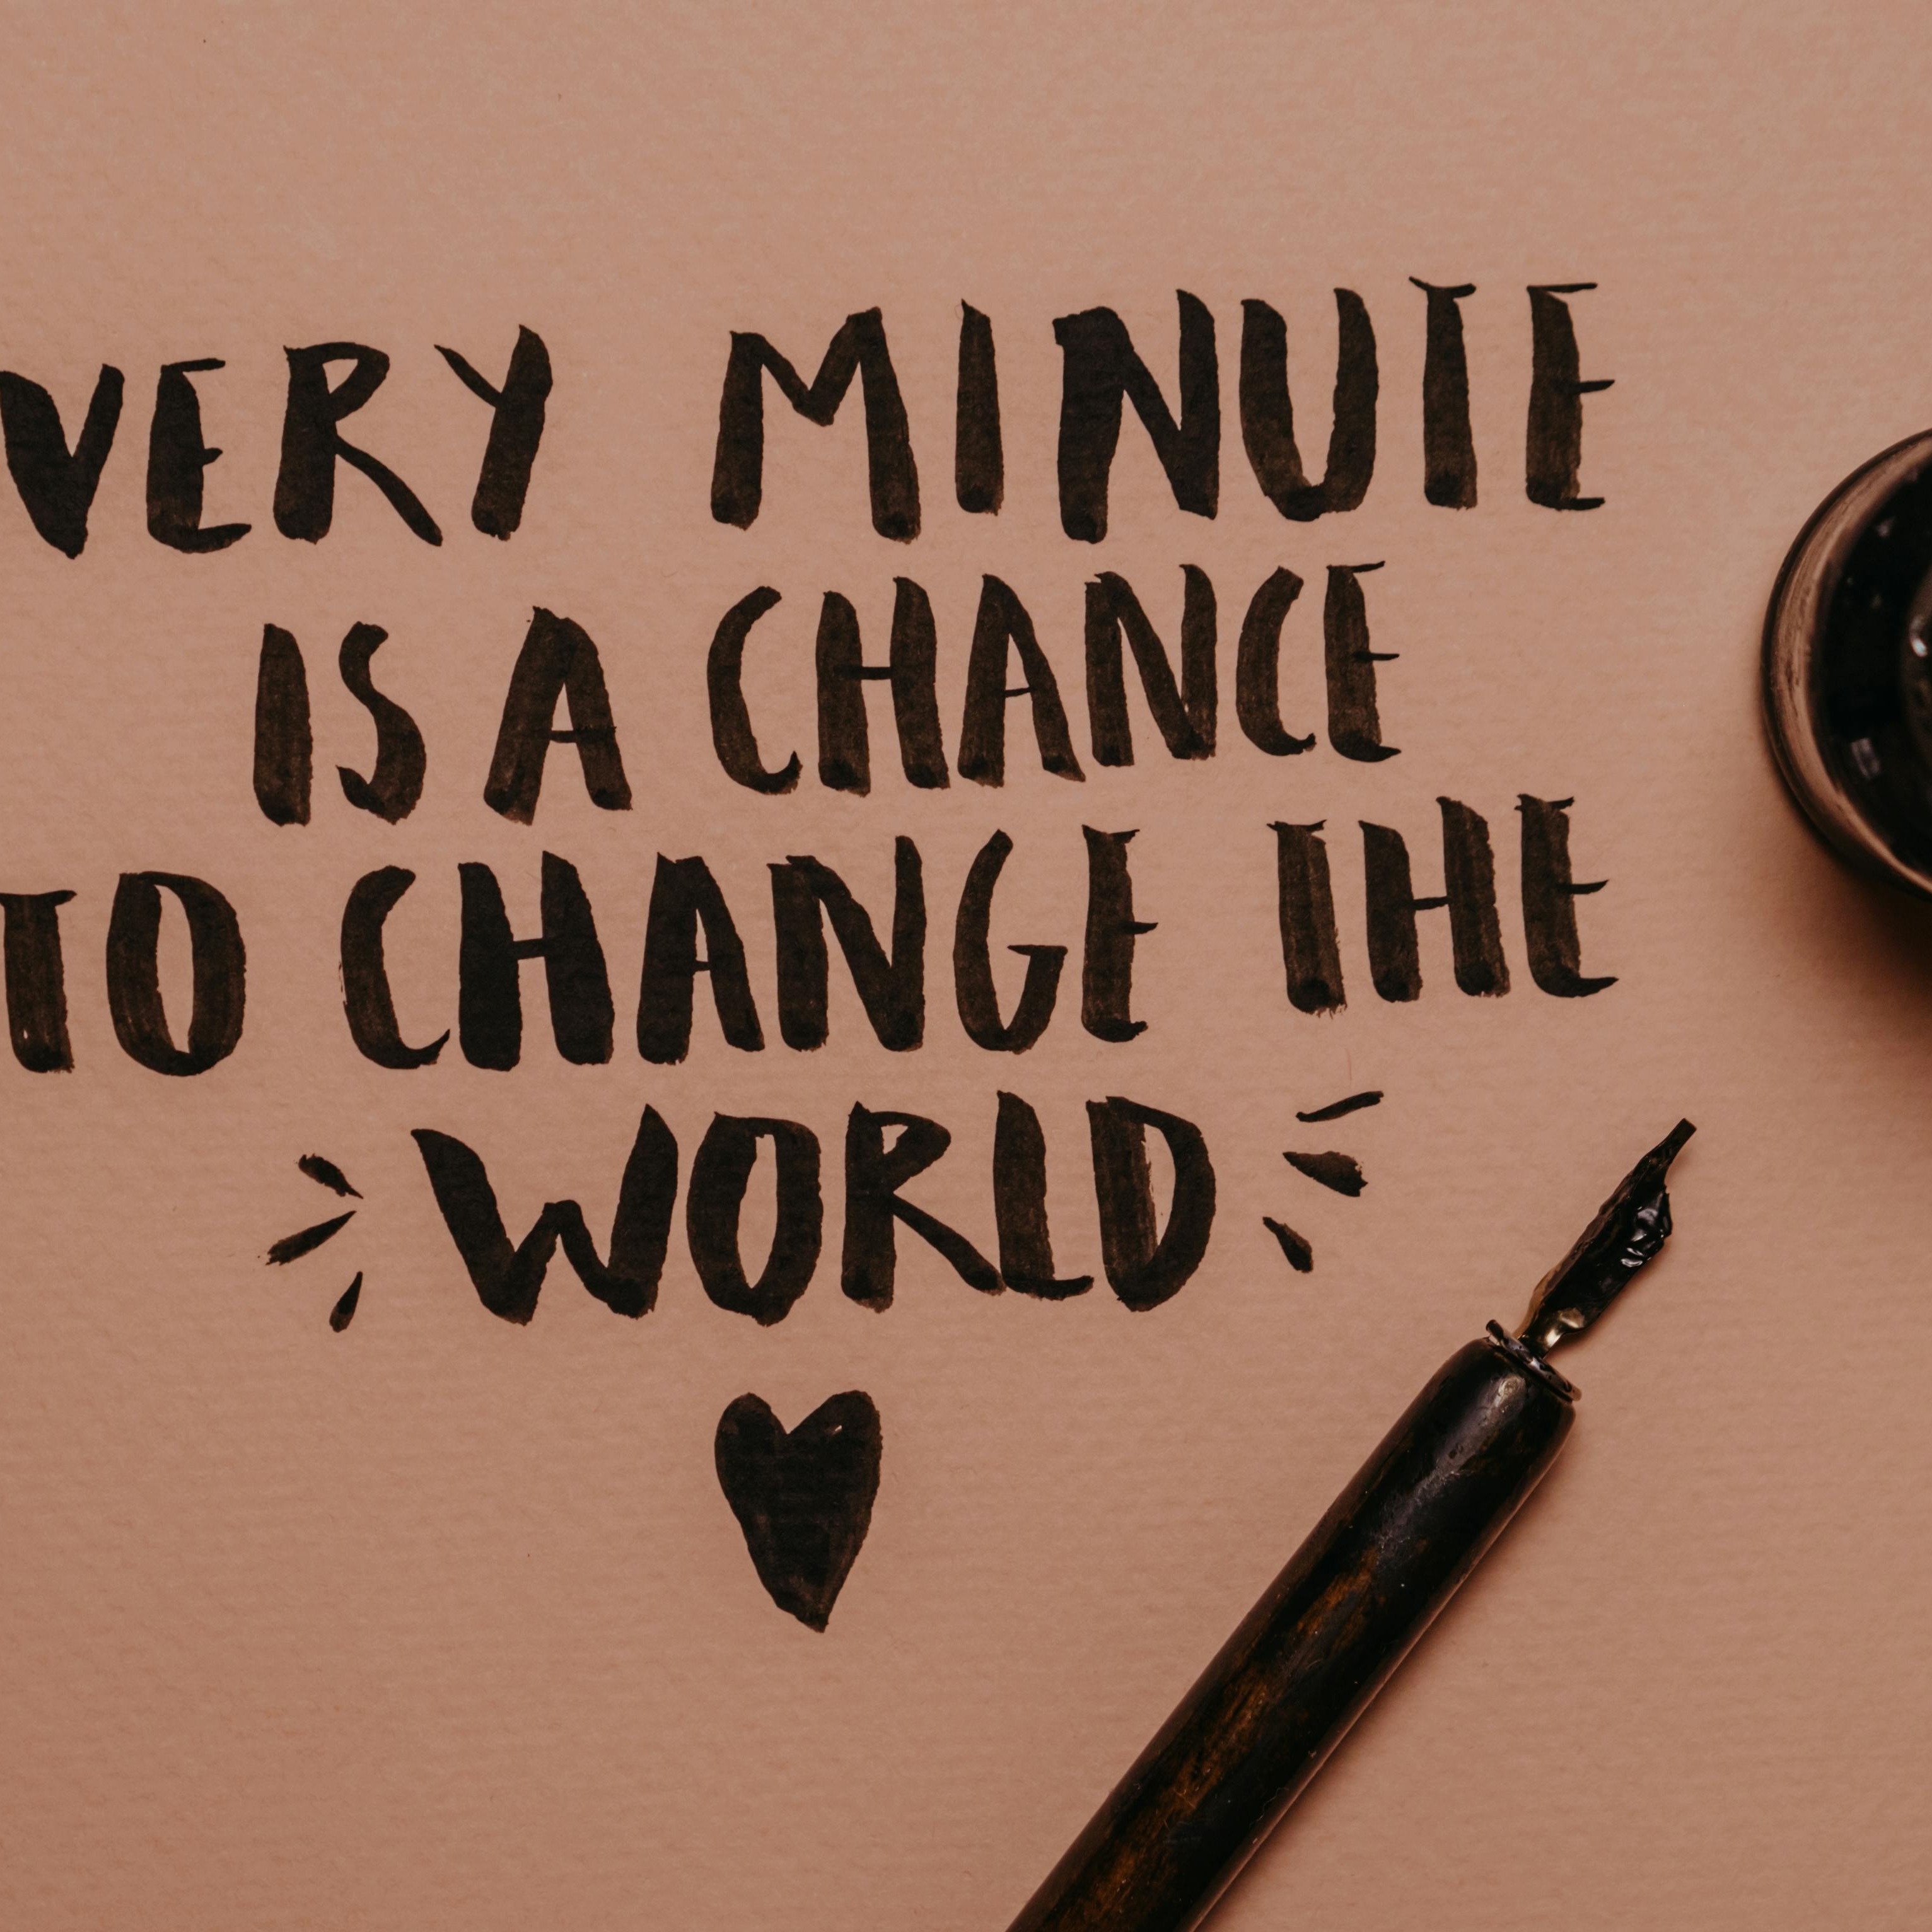 VERY MINUTE
IS A CHANCE
TO CHANGE THE
WORLD